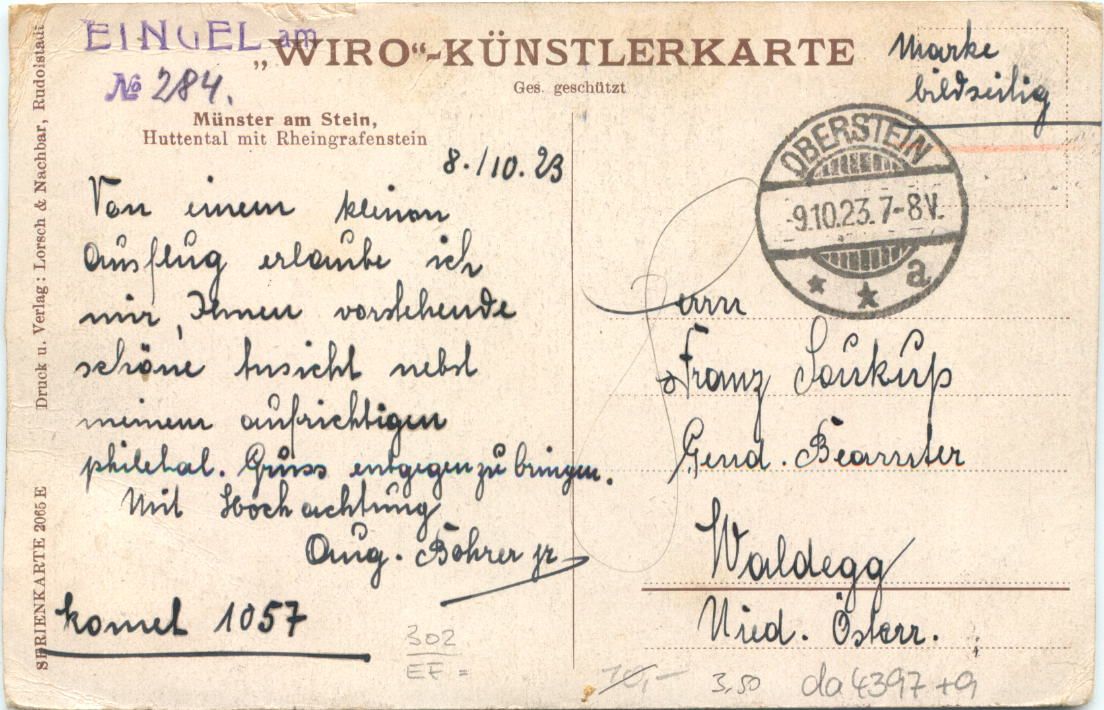 EINGEL am
№ 284.
„WIRO“-KÜNSTLERKARTE
Ges. geschützt
Marke
bildseitig
Münster am Stein,
Huttental mit Rheingrafenstein
8./10.23
Von einem kleinen
Ausflug erlaube ich
mir, Ihnen vorstehende
schöne Ansicht nebst
meinem aufrichtigen
philetal. Gruss entgegenzubringen.
Mit Hochachtung
Aug. Bohrer jr
komet 1057
OBERSTEIN
-9.10.23.7-8V.
* * a
Herrn
Franz Soukup
Gend. Beamter
Waldegg
Nied. Österr.
Druck u. Verlag: Lorsch & Nachbar, Rudolstadt
SERIENKARTE 2065 E
302
EF =
10,-
3,50
da4397+9